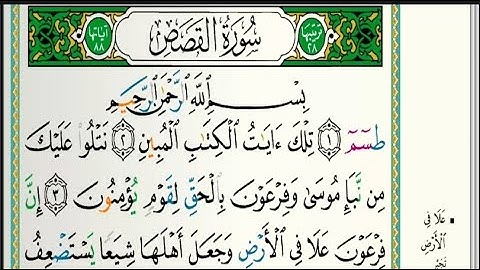 ترتيبها ٢٨ سُورَةُ القَصَصِ آياتها ٨٨
بِسْمِ ٱللَّهِ ٱلرَّحْمَٰنِ ٱلرَّحِيمِ
طسٓمٓ ۝١ تِلْكَ ءَايَٰتُ ٱلْكِتَٰبِ ٱلْمُبِينِ ۝٢ نَتْلُوا۟ عَلَيْكَ
مِن نَّبَإِ مُوسَىٰ وَفِرْعَوْنَ بِٱلْحَقِّ لِقَوْمٍ يُؤْمِنُونَ ۝٣ إِنَّ
فِرْعَوْنَ عَلَا فِى ٱلْأَرْضِ وَجَعَلَ أَهْلَهَا شِيَعًا يَسْتَضْعِفُ
▪ عَلَا فِي
الأَرْضِ